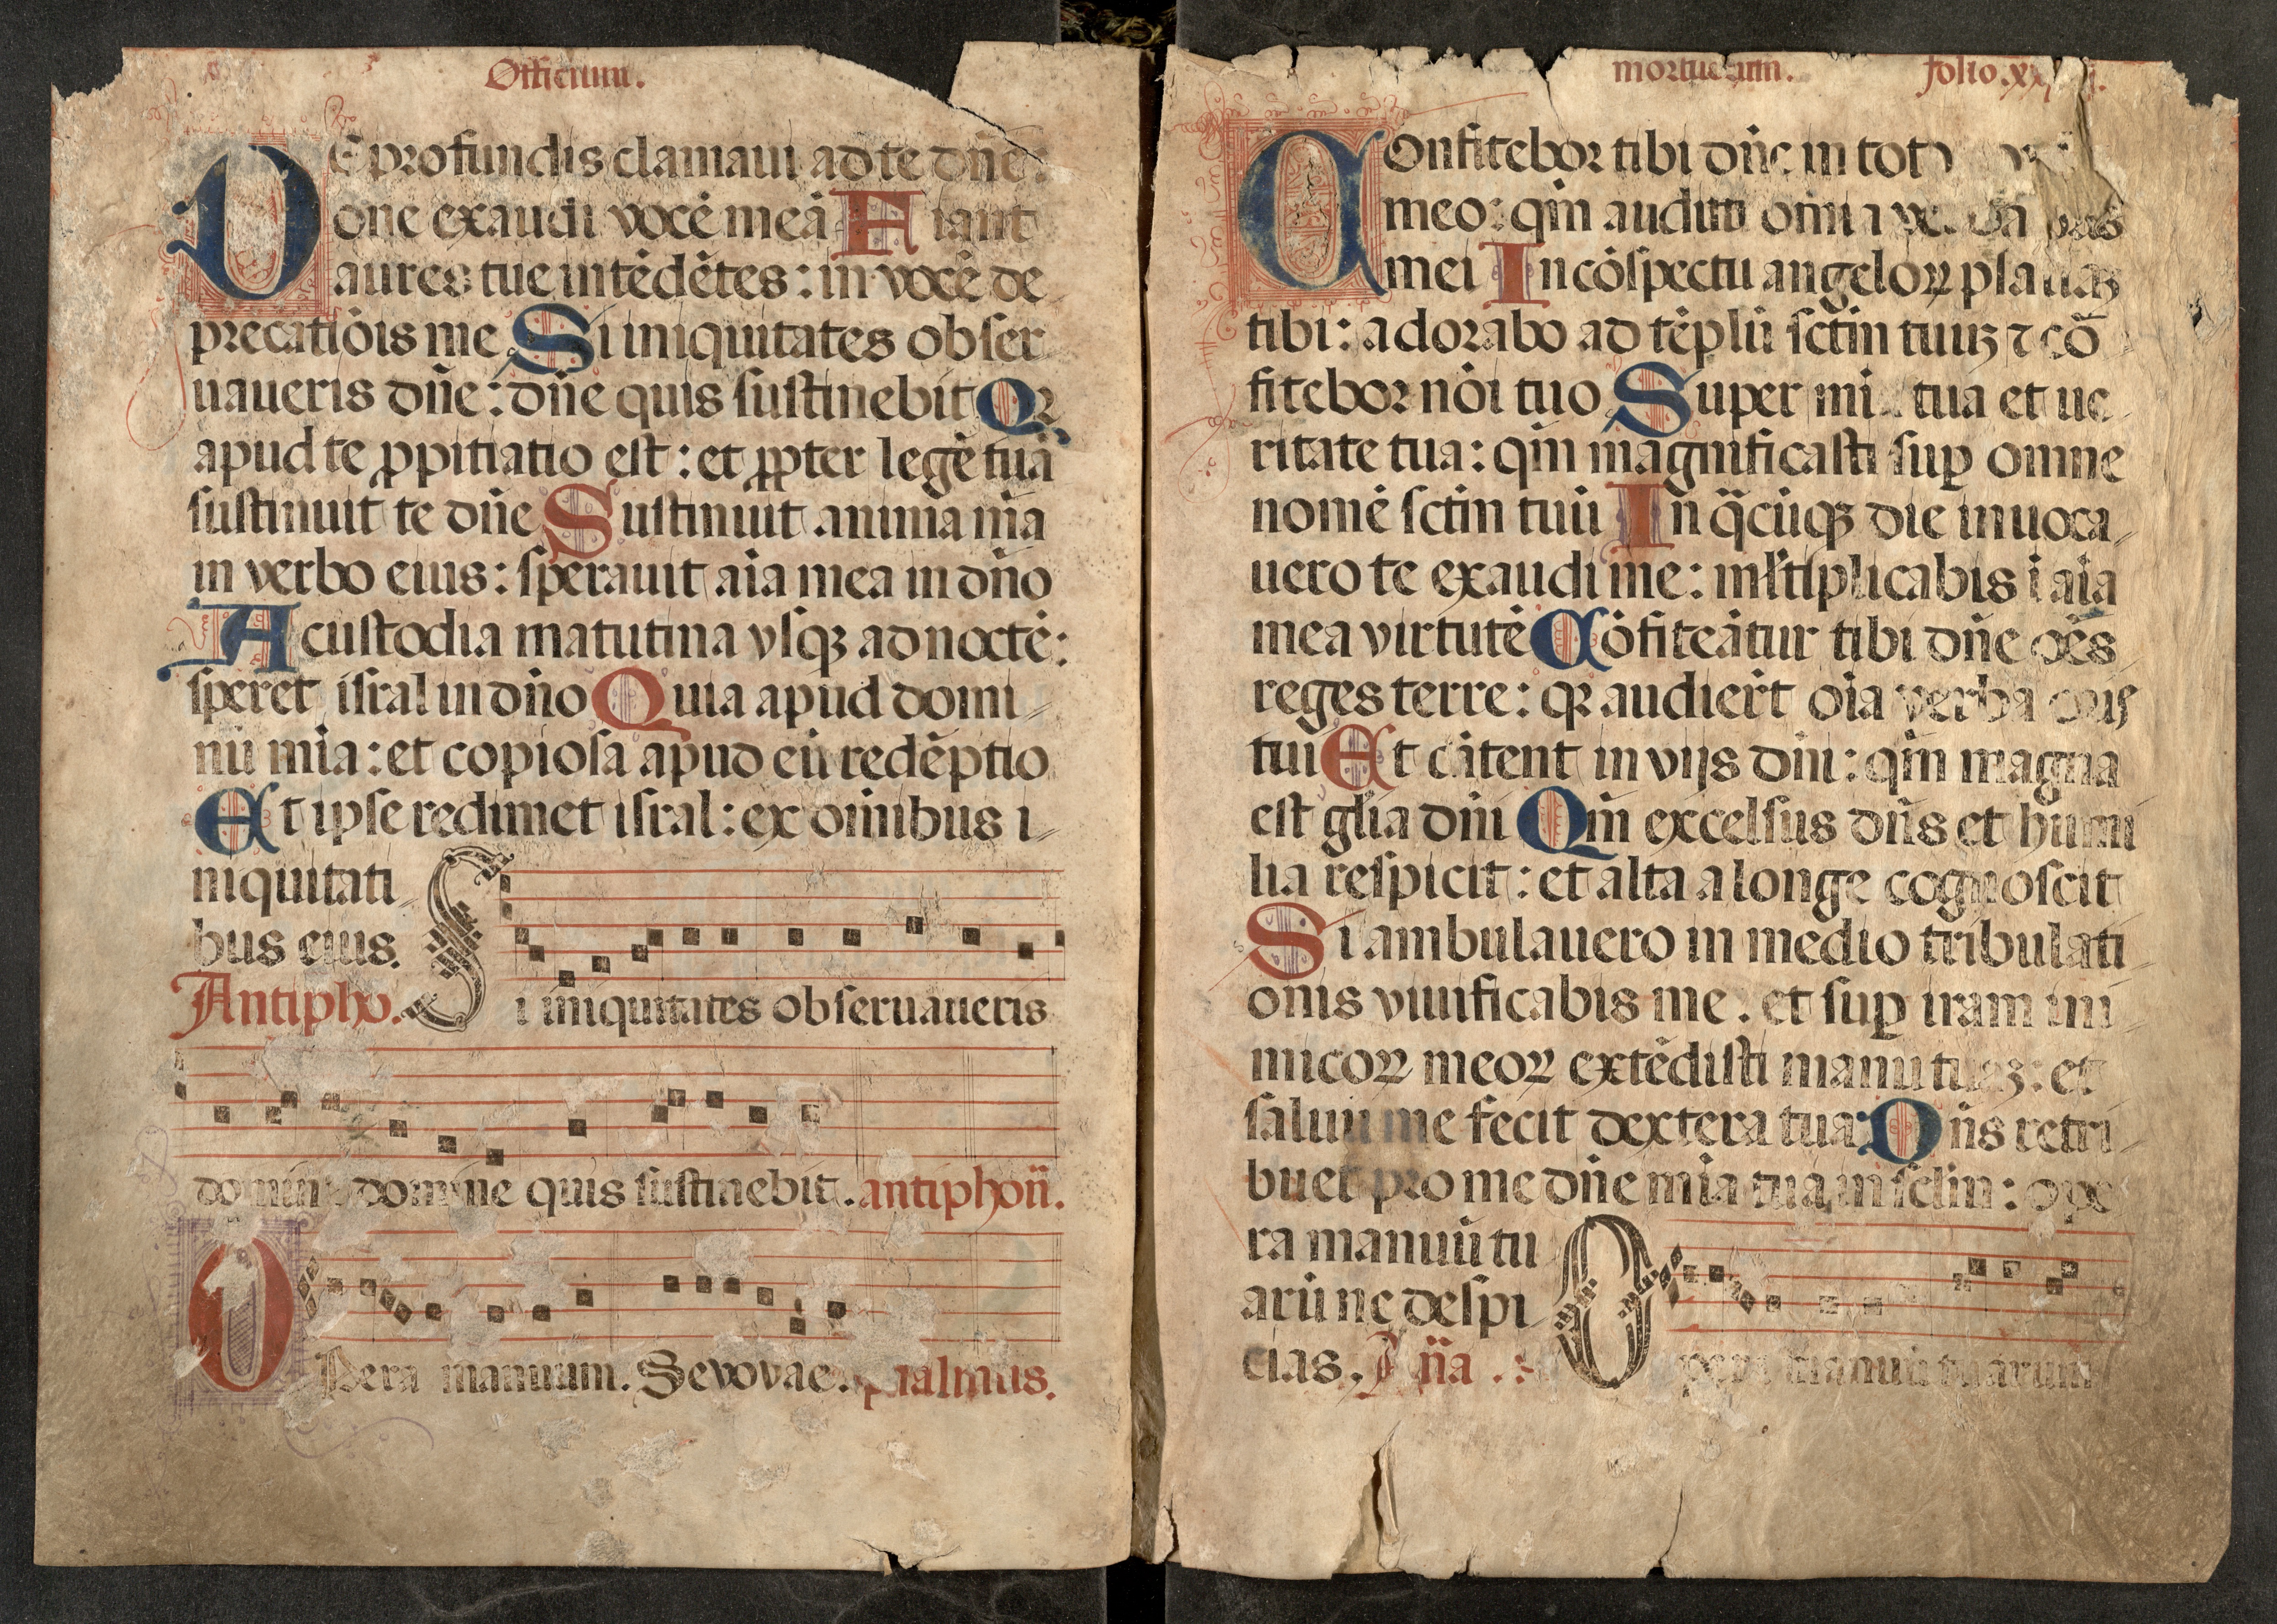 Officium.
DE profundis clamaui ad te dñe:
dñe exaudi vocē meā Fiant
aures tue intēdētes: in vocē de
precatiōis me Si iniquitates obser
uaueris dñe: dñe quis sustinebit Qꝛ
apud te ꝓpitiatio est: et ꝓpter legē tuā
sustinuit te dñe Sustinuit anima mā
in verbo eius: sperauit aīa mea in dño
A custodia matutina vsqꝫ ad noctē:
speret isral in dño Quia apud domi
nū mīa: et copiosa apud eū redēptio
Et ipse redimet isral: ex oīnibus i
niquitati
bus eius.
Antipho.
Si iniquitates obseruaueris
domine domine quis sustinebit. antiphoñ.
Opera manuum. Sevovae. psalmus.
mortuorum. folio.
Confitebor tibi dñe in toto
meo: qm̄ audisti oīnia verba oris
mei In cōspectu angeloꝝ psallaꝫ
tibi: adorabo ad tēplū sctm̄ tuuꝫ ⁊ cō
fitebor nōi tuo Super mi tua et ue
ritate tua: qm̄ magnificasti suꝑ omne
nomē sctm̄ tuū In q̄cūqꝫ die inuoca
uero te exaudi me: ml̄tiplicabis ī aīa
mea virtutē Cōfiteātur tibi dñe oēs
reges terre: qꝛ audiert̄ oīa verba oris
tui Et cātent in vijs dñi: qm̄ magna
est gl̄ia dñi Qm̄ excelsus dñs et humi
lia respicit: et alta a longe cognoscit
Si ambulauero in medio tribulati
onis viuificabis me. et suꝑ iram ini
micoꝝ meoꝝ extēdisti manū tuaꝫ: et
saluū me fecit dextera tua: Dñs retri
buet pro me dñe mīa tua in sclm̄: ope
ra manuū tu
arū ne despi
cias. Aña
Opera manuū tuarum